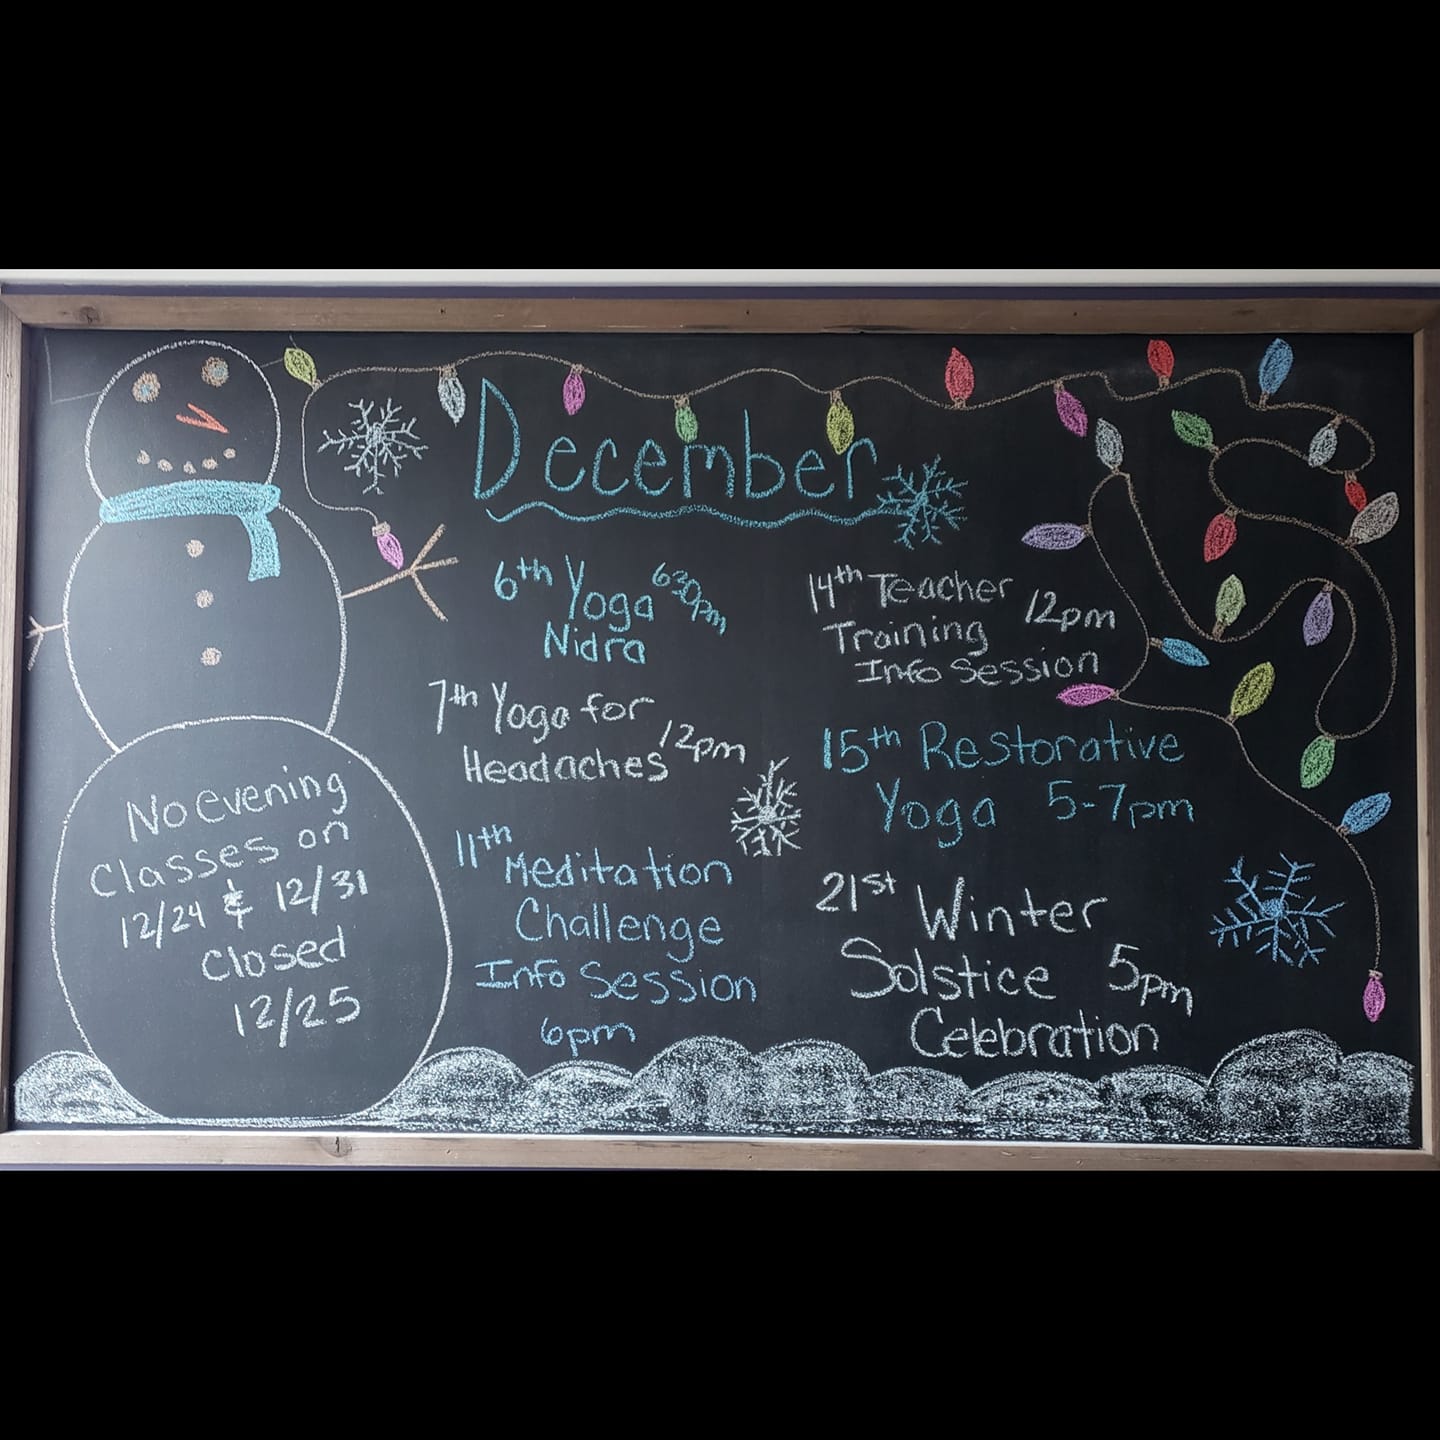 December
6th Yoga 630pm
Nidra
7th Yoga for
Headaches 12pm
11th Meditation
Challenge
Info Session
6pm
14th Teacher 12pm
Training
Info Session
15th Restorative
Yoga 5-7pm
21st Winter
Solstice 5pm
Celebration
No evening
Classes on
12/24 & 12/31
Closed
12/25